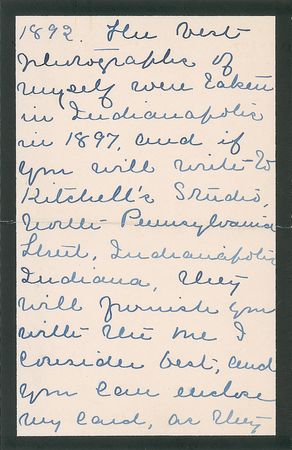 1892. The best
photographs of
myself were taken
in Indianapolis
in 1897, and if
you will write to
Kitchell's Studio,
North Pennsylvania
Street, Indianapolis
Indiana, they
will furnish you
with the one I
consider best, and
you can enclose
my card, as they